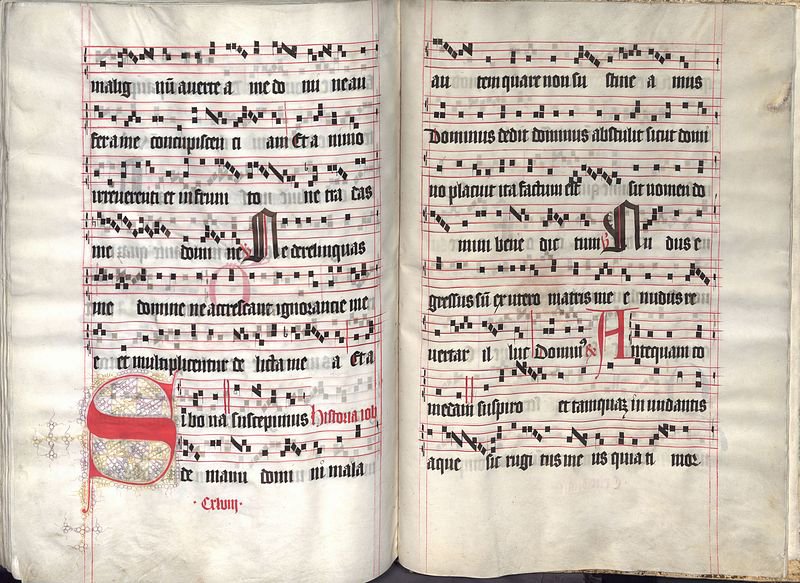 malig nū auerte a me do mi ne au
fera me concupiscen ci am Et a nimo
irreuerenti et infruni to ne tra das
me domi ne Ne derelinquas
me domine ne accrescant ignorancie me
e et multiplicentur de licta me a Et a
Si bo na suscepimus historia iob
de manu domi ni mala
Cxlviij
au tem quare non su stine a mus
Dominus dedit dominus abstulit sicut domi
no placuit ita factum est sit nomen do
mini bene dic tum Nu dus e
gressus sū ex utero matris me e nudus re
uertar il luc Dominꝰ Antequam co
medam suspiro et tamquaꝫ in undantis
aque sic rugi tus me us quia ti mor